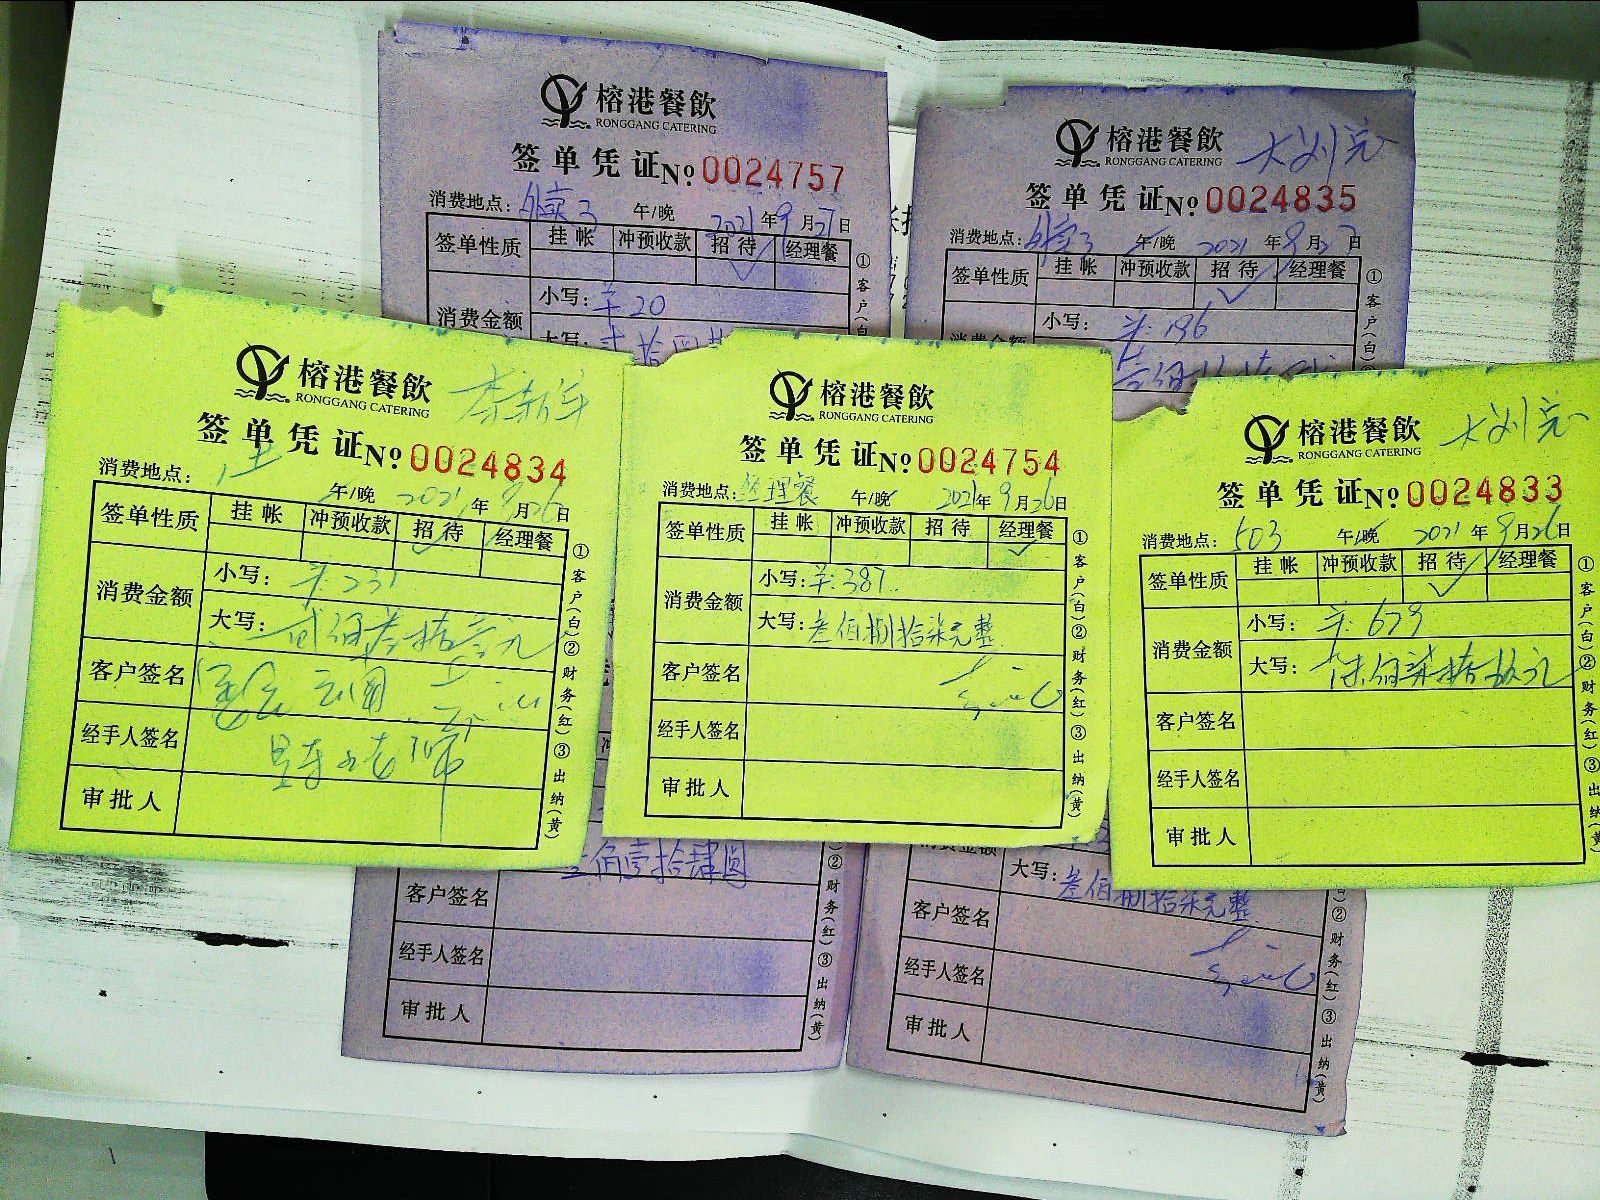 榕港餐飲
RONGGANG CATERING
签单凭证 № 0024757
消费地点: 外卖3 午/晚 2021年9月27日
签单性质 挂帐 冲预收款 招待 经理餐
消费金额 小写: ¥20
大写:
①客户(白)
榕港餐飲
RONGGANG CATERING
签单凭证 № 0024835
消费地点: 外卖3 午/晚 2021年9月27日
签单性质 挂帐 冲预收款 招待 经理餐
消费金额 小写: ¥:196
①客户(白)
榕港餐飲
RONGGANG CATERING
签单凭证 № 0024834
消费地点: 午/晚 2021年9月26日
签单性质 挂帐 冲预收款 招待 经理餐
消费金额 小写: ¥:231
大写: 贰佰叁拾壹元
客户签名
经手人签名
审批人
①客户(白)②财务(红)③出纳(黄)
榕港餐飲
RONGGANG CATERING
签单凭证 № 0024754
消费地点: 经理餐 午/晚 2021年9月26日
签单性质 挂帐 冲预收款 招待 经理餐
消费金额 小写: ¥:387
大写: 叁佰捌拾柒元整
客户签名
经手人签名
审批人
①客户(白)②财务(红)③出纳(黄)
榕港餐飲
RONGGANG CATERING
签单凭证 № 0024833
消费地点: 503 午/晚 2021年9月26日
签单性质 挂帐 冲预收款 招待 经理餐
消费金额 小写: ¥:679
大写: 陆佰柒拾玖元
客户签名
经手人签名
审批人
①客户(白)②财务(红)③出纳(黄)
壹拾肆圆
客户签名
经手人签名
审批人
②财务(红)③出纳(黄)
消费金额 大写: 叁佰捌拾柒元整
客户签名
经手人签名
审批人
②财务(红)③出纳(黄)